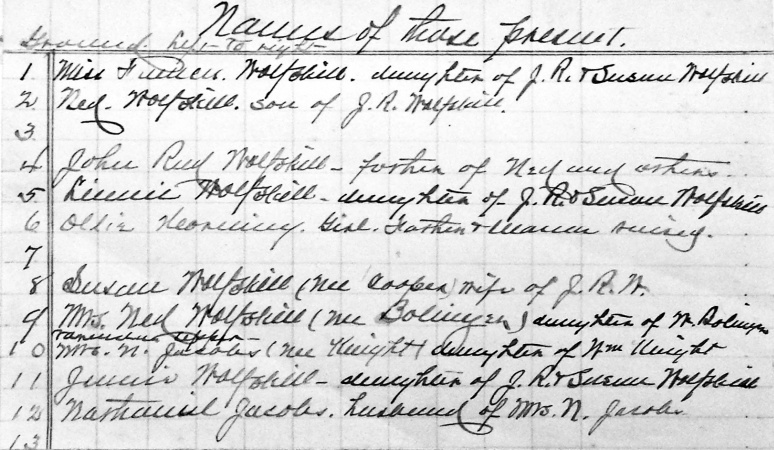 Names of those present.
Ground left to right
1 Miss Frances. Wolfskill. daughter of J. R. & Susan Wolfskill
2 Ned. Wolfskill. son of J. R. Wolfskill.
3
4 John Reid Wolfskill - father of Ned and others.
5 Linnie Wolfskill - daughter of J. R. & Susan Wolfskill
6 Ollie Girl.
7
8 Susan Wolfskill (nee Cooper) wife of J. R. W.
9 Mrs. Ned Wolfskill (nee Bolinger) daughter of W. Bolinger
10 Mrs. N. Jacobs (nee Knight) daughter of Wm Knight
11 Jennie Wolfskill - daughter of J. R. & Susan Wolfskill
12 Nathaniel Jacobs. husband of Mrs. N. Jacobs
13